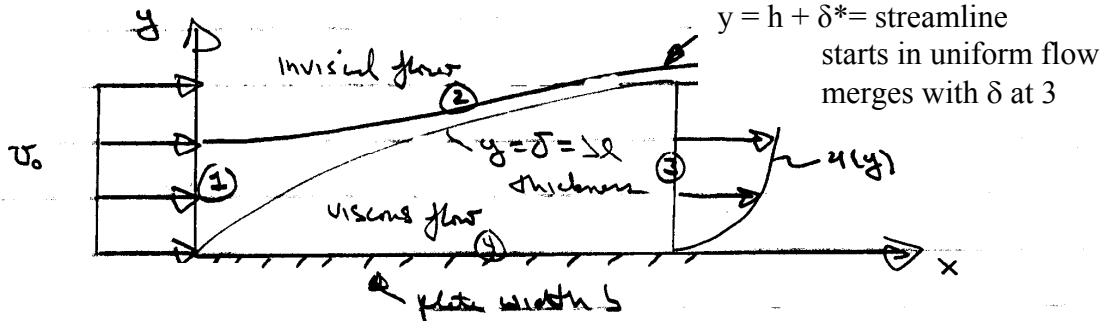 y = h + δ*= streamline
starts in uniform flow
merges with δ at 3
y
inviscid flow
2
y = δ = Sl
thickness
v₀
1
3
u(y)
viscous flow
4
x
plate width b